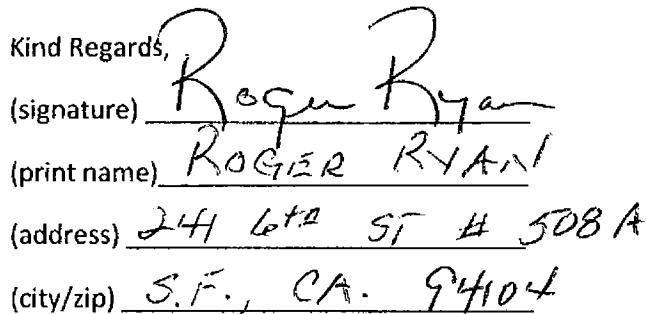 Kind Regards,
(signature) Roger Ryan
(print name) ROGER RYAN
(address) 241 6th ST # 508 A
(city/zip) S.F., CA. 94104